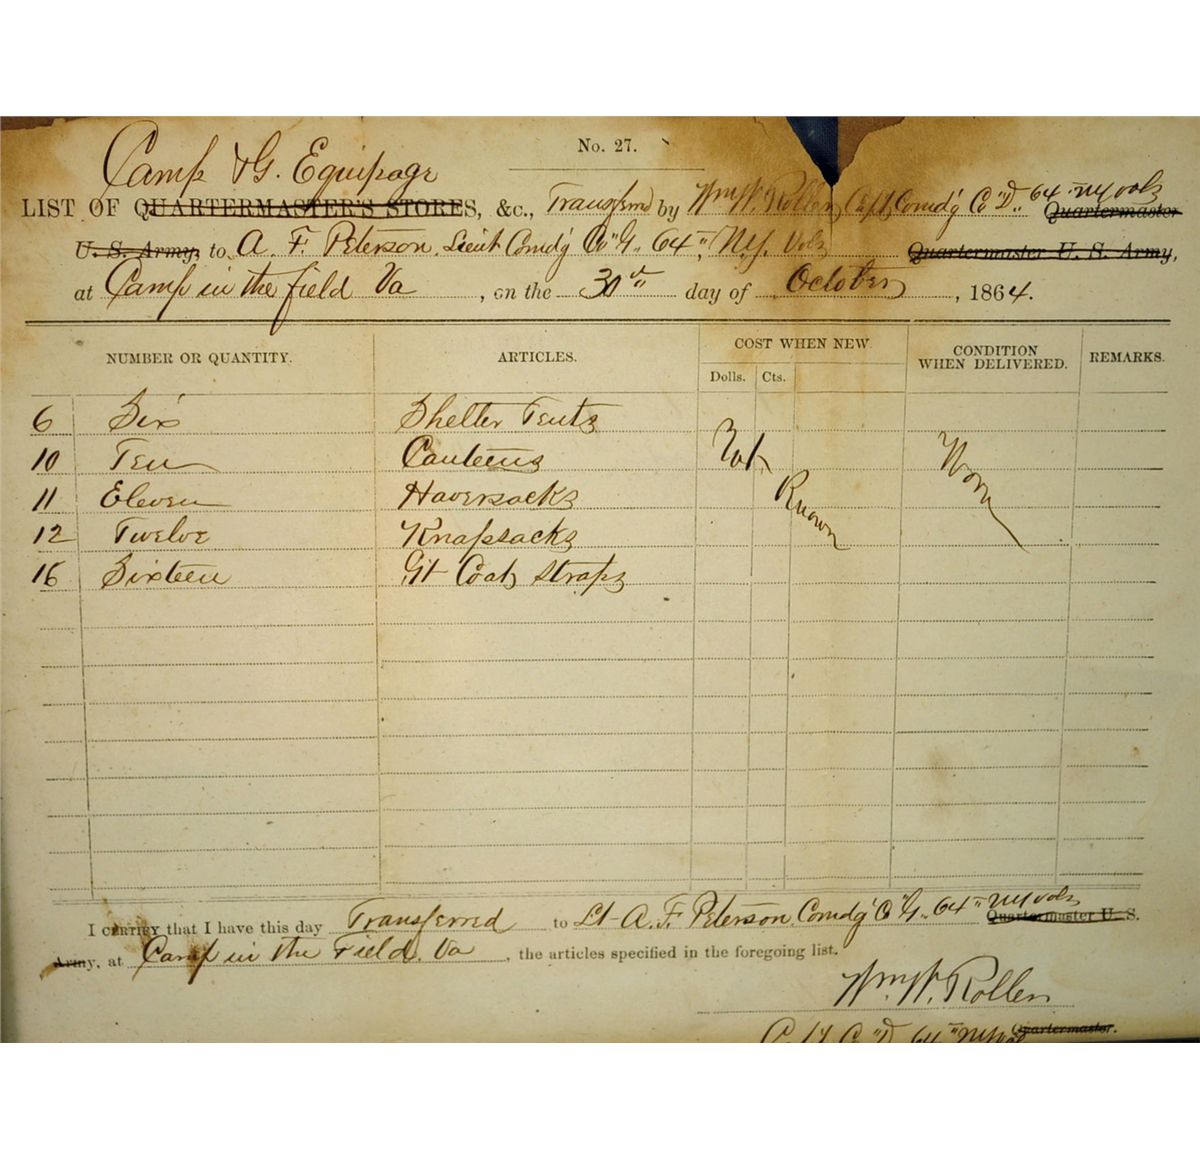 No. 27.
Camp & G. Equipage
LIST OF QUARTERMASTER'S STORES, &c., Transferred by Wm W. Rollen Capt Comdg Co "D" 64th NY Vols Quartermaster
U. S. Army, to A. F. Peterson Lieut Comdg Co "G" 64th N.Y. Vols Quartermaster U. S. Army,
at Camp in the field Va, on the 30th day of October, 1864.
NUMBER OR QUANTITY. ARTICLES. COST WHEN NEW CONDITION WHEN DELIVERED. REMARKS.
Dolls. Cts.
6 Six Shelter Tents
10 Ten Canteens Not Known Worn
11 Eleven Haversacks
12 Twelve Knapsacks
16 Sixteen Gt Coat Straps
I CERTIFY that I have this day Transferred to Lt A. F. Peterson Comdg Co "G" 64th NY Vols Quartermaster U. S.
Army, at Camp in the Field, Va, the articles specified in the foregoing list.
Wm W. Rollen
Capt Co "D" 64th NY Vols Quartermaster.